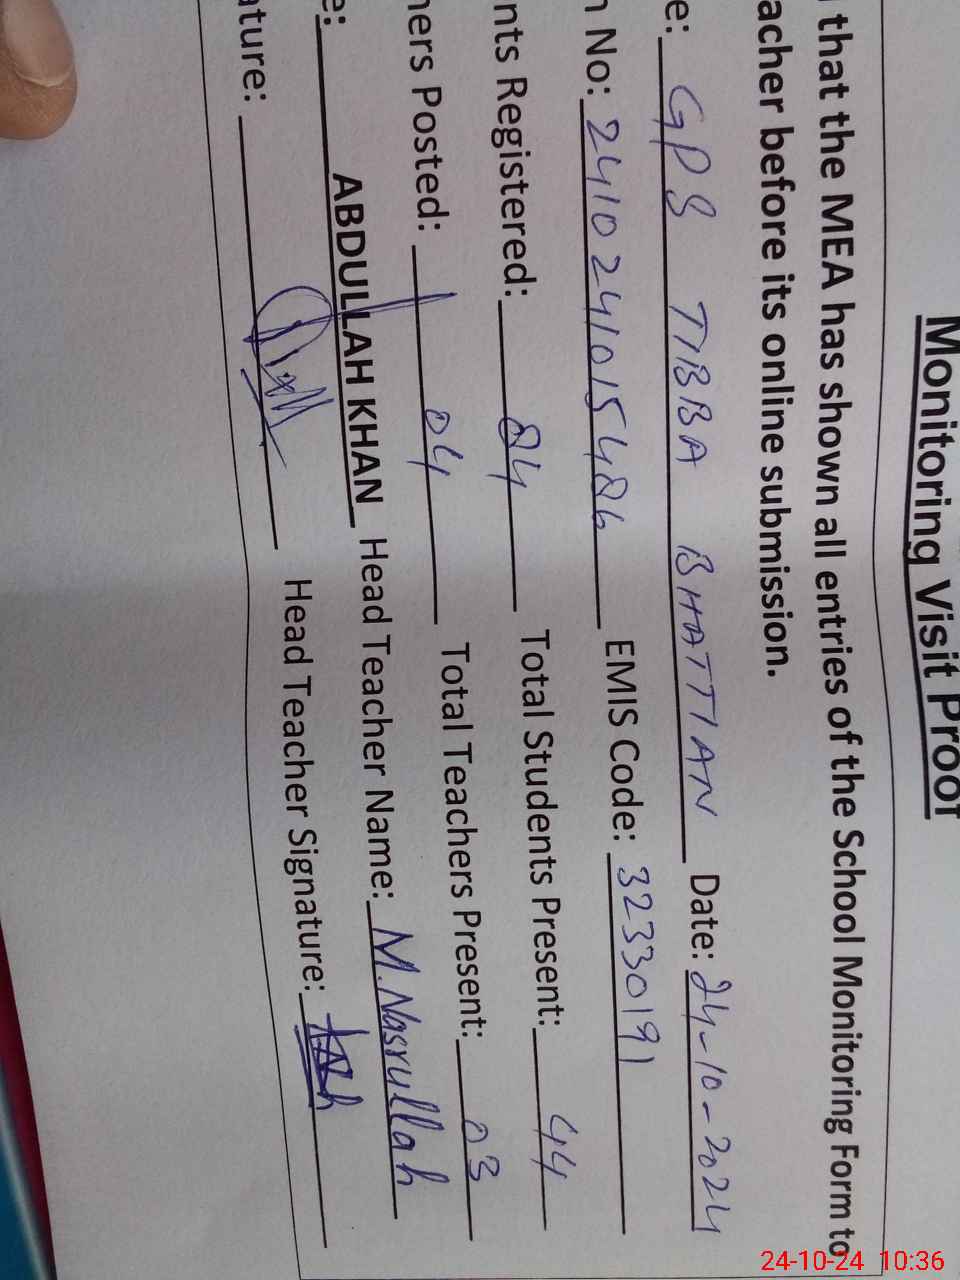 Monitoring Visit Proof
that the MEA has shown all entries of the School Monitoring Form to
acher before its online submission.
e: GPS TIBBA BHATTIAN Date: 24-10-2024
No: 2410241015486 EMIS Code: 32330191
nts Registered: 84 Total Students Present: 44
hers Posted: 04 Total Teachers Present: 03
e: ABDULLAH KHAN Head Teacher Name: M. Nasrullah
ature: Head Teacher Signature:
24-10-24 10:36